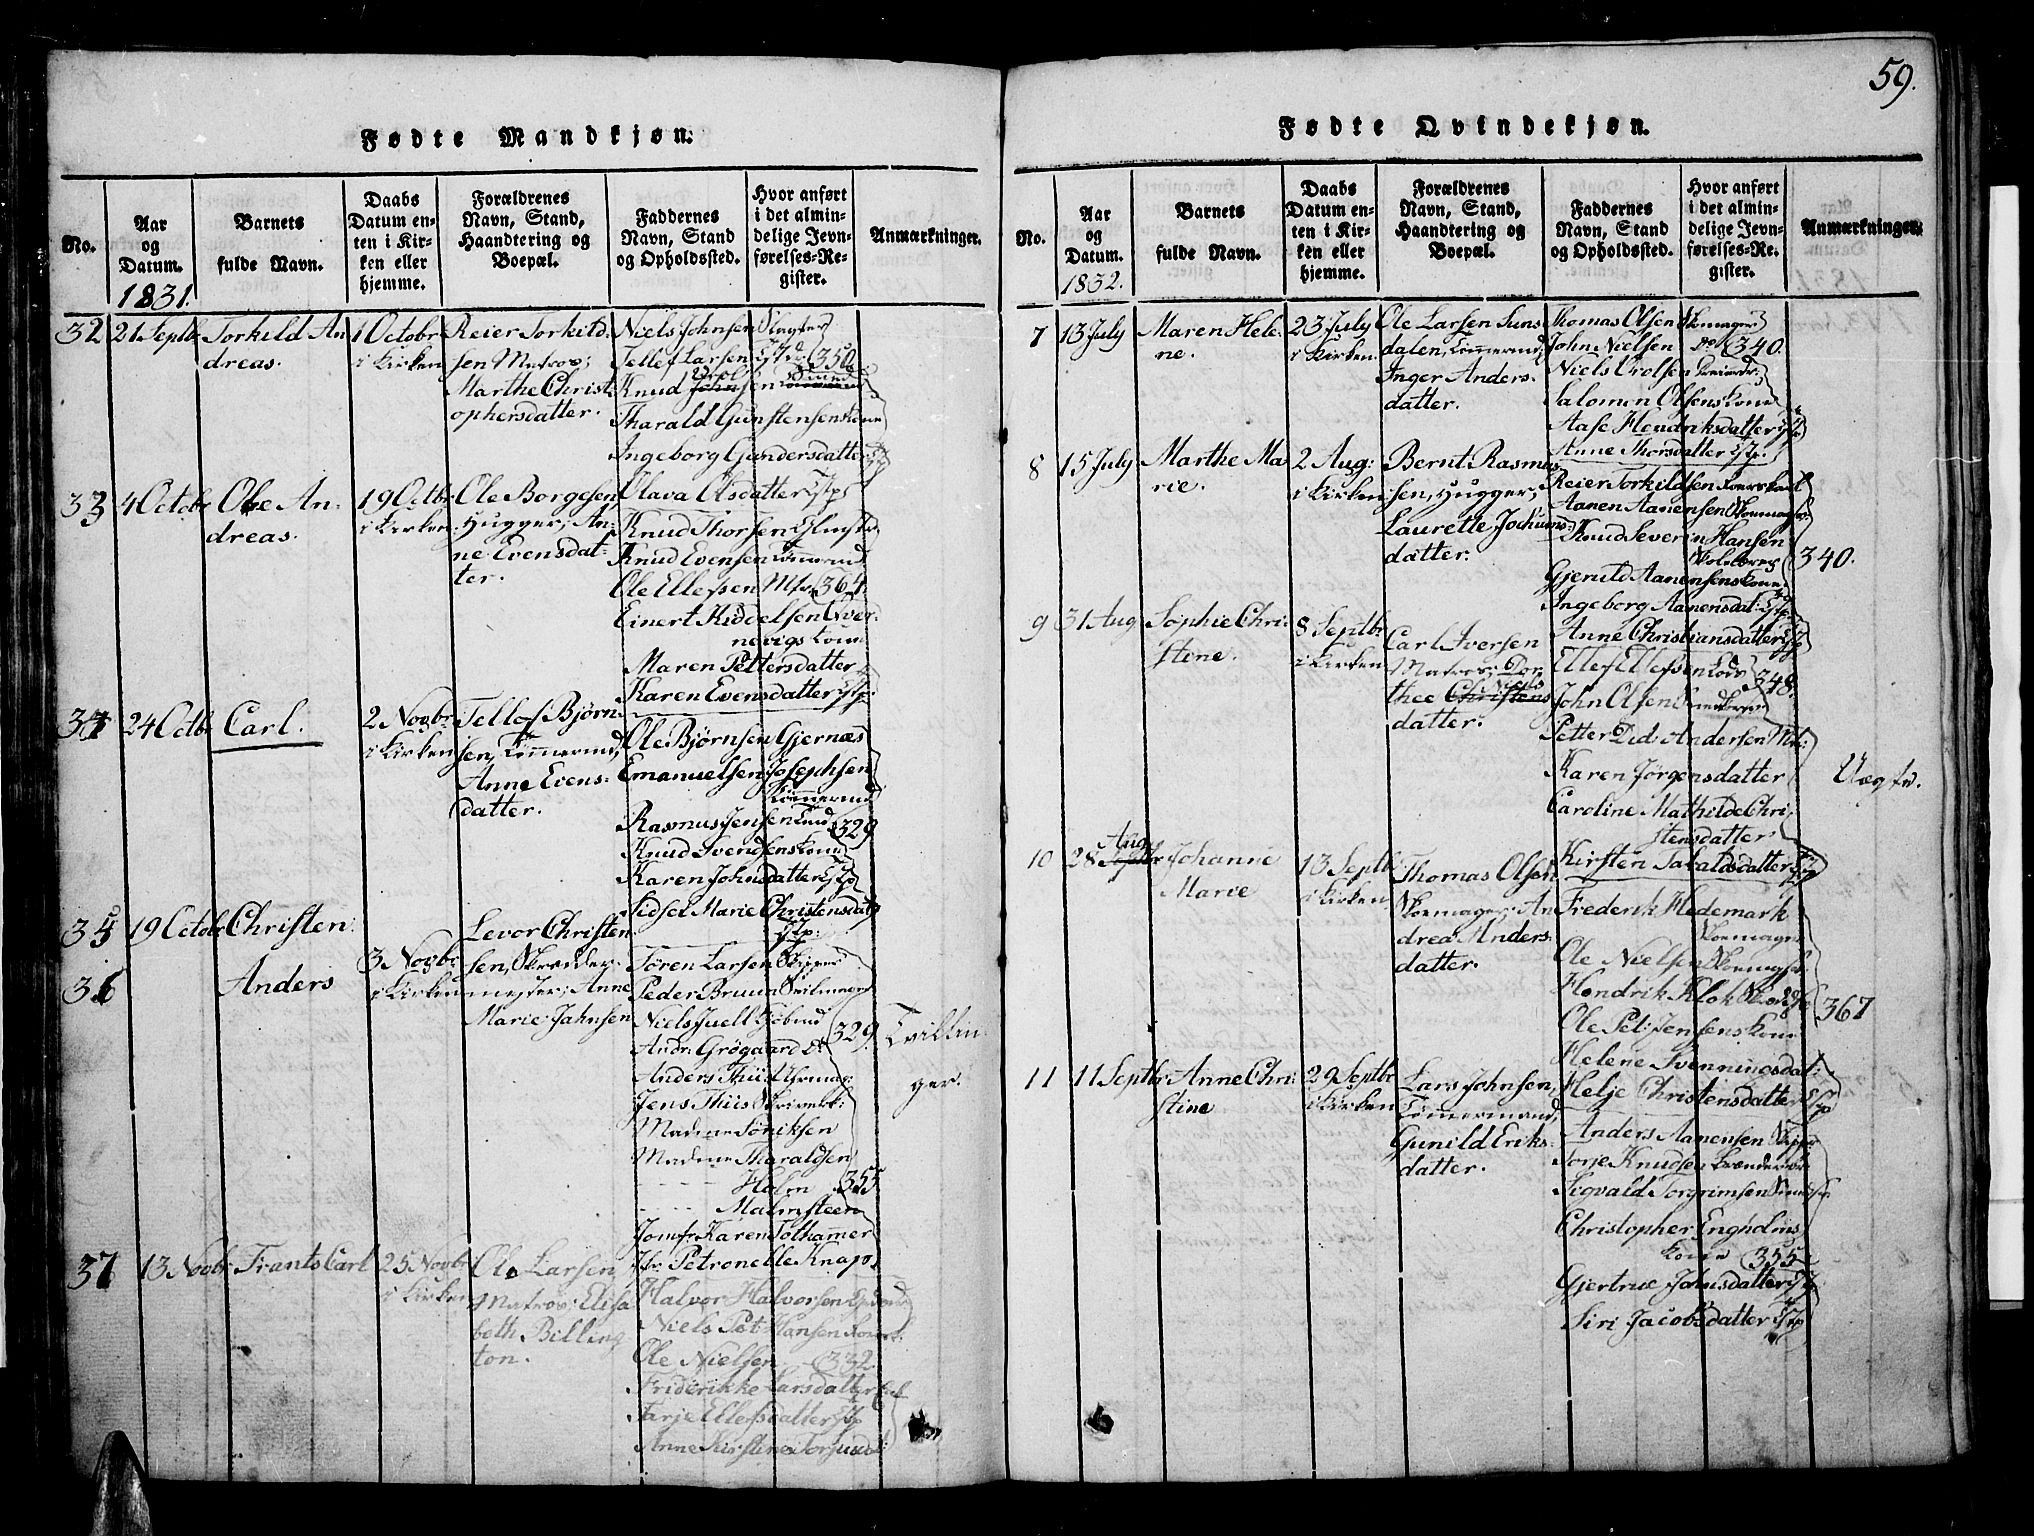 59.
Fødte Mandkjøn.
No.
Aar og Datum.
Barnets fulde Navn.
Daabs Datum enten i Kirken eller hjemme.
Forældrenes Navn, Stand, Haandtering og Boepæl.
Faddernes Navn, Stand og Opholdssted.
Hvor anført i det almindelige Jevnførelses-Register.
Anmærkninger.
1831.
32
21 Septbr
Torkild An
dreas.
1 Octobr
i Kirken
Reier Torkild.
sen Matros;
Marthe Christ
ophersdatter.
Niels Johnsen Slagter
Tellef Larsen
350
Knud Johnsen
Tharald Gunstensens Kone
Ingeborg Gundersdatter
33
4 Octobr
Ole An
dreas.
19 Octbr
i Kirken
Ole Borgesen,
Hugger; An
ne Evensdat
ter.
Olava Olsdatter
Knud Thorsen
Knud Evensen Tømmermd
Ole Ellefsen Mtr 364
Einert Kiddelsen Øver
nevigs Kone
Maren Pettersdatter
Karen Evensdatter
34
24 Octbr
Carl.
2 Novbr
i Kirken
Tellef Bjørn
sen, Tømmermd,
Anne Evens
datter.
Ole Bjørnsen Gjernæs
Emanuelsen Josephsen
Tømmermd
Rasmus Jensen Lund 329
Knud Svendsens Kone
Karen Johnsdatter
Sidsel Marie Christensdat
35
19 Octobr
Christen.
Levor Christen
sen, Skrædder
mester; Anne
Marie Jahnsen
36
Anders
3 Novbr
i Kirken
Søren Larsen Skipper
Peder Bruun
Niels Juell Kjøbmd
329.
Andr: Grøgaard
Anders Thiis Uhrmag
Jens Thiis
Madme Sønniksen
Madme Tharaldsen
Holm 355
Malmsteen
Jomfr Karen Tothammer
Jfr Petronelle Knap
Tvillin
ger.
37
13 Novbr
Frants Carl
25 Novbr
i Kirken
Ole Larsen,
Matros; Elisa
beth Billing
ton.
Halvor Halvorsen
Niels Pet: Hansen
Ole Nielsen 332
Friderikke Larsdatter
Tarje Ellefsdatter
Anne Kirstine
Fødte Qvindekjøn.
No.
Aar og Datum.
Barnets fulde Navn.
Daabs Datum enten i Kirken eller hjemme.
Forældrenes Navn, Stand, Haandtering og Boepæl.
Faddernes Navn, Stand og Opholdssted.
Hvor anført i det almindelige Jevnførelses-Register.
Anmærkninger.
1832.
7
13 July
Maren Hele
ne.
23 July
i Kirken
Ole Larsen Suns
dalen, Tømmermd,
Inger Anders
datter.
Thomas Olsen Skomager
John Nielsen do 340.
Niels Orolsen
Salomon Olsens Kone
Aase Hendriksdatter
Anne Thorsdatter
8
15 July
Marthe Ma
rie.
2 Aug:
i Kirken
Bernt Rasmus
sen, Hugger;
Laurette Jochums
datter.
Reier Torkildsen
Aanen Aanensen Skomager
Knud Severin Hansen
340.
Gjeruld Aanensens Kone
Ingeborg Aanensdat:
Anne Christiansdatter
9
31 Aug
Sophie Chri
stine.
8 Septbr
i Kirken
Carl Iversen
Matros; Dor
thee Christens
datter.
Ellef Ellefsen Lods
348
John Olsen
Petter Did: Andersen Mat:
Karen Jørgensdatter
Caroline Mathilde Chri
stensdatter
Kirsten
Uægte.
10
28 Aug
Johanne
Marie
13 Septb
i Kirken
Thomas Olsen
Skomager; An
drea Anders
datter.
Frederik Hedemark
Skomager
Ole Nielsen Skomager
Hendrik Klok
367
Ole Pet: Jensens Kone
Helene Svenningsdat:
Helje Christensdatter
11
11 Septbr
Anne Chri
stine
29 Septbr
i Kirken
Lars Johnsen,
Tømmermand,
Gunild Eriks
datter.
Anders Aanensen Skipper
Torje Knudsen
Sigvald Torgrimsen
Christopher Engholms
Kone 355
Gjertrue Johnsdatter
Siri Jacobsdatter